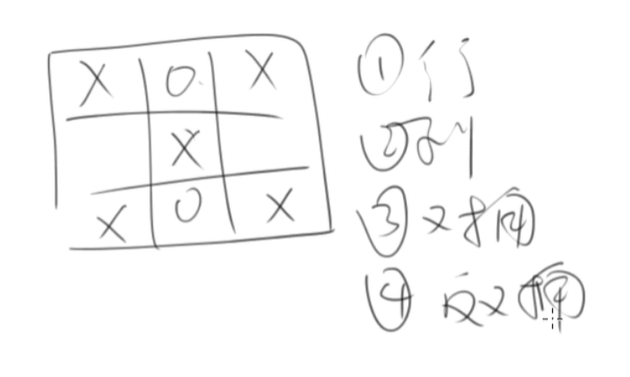 X O X
X
X O X
① 行
② 列
③ 对角
④ 反对角